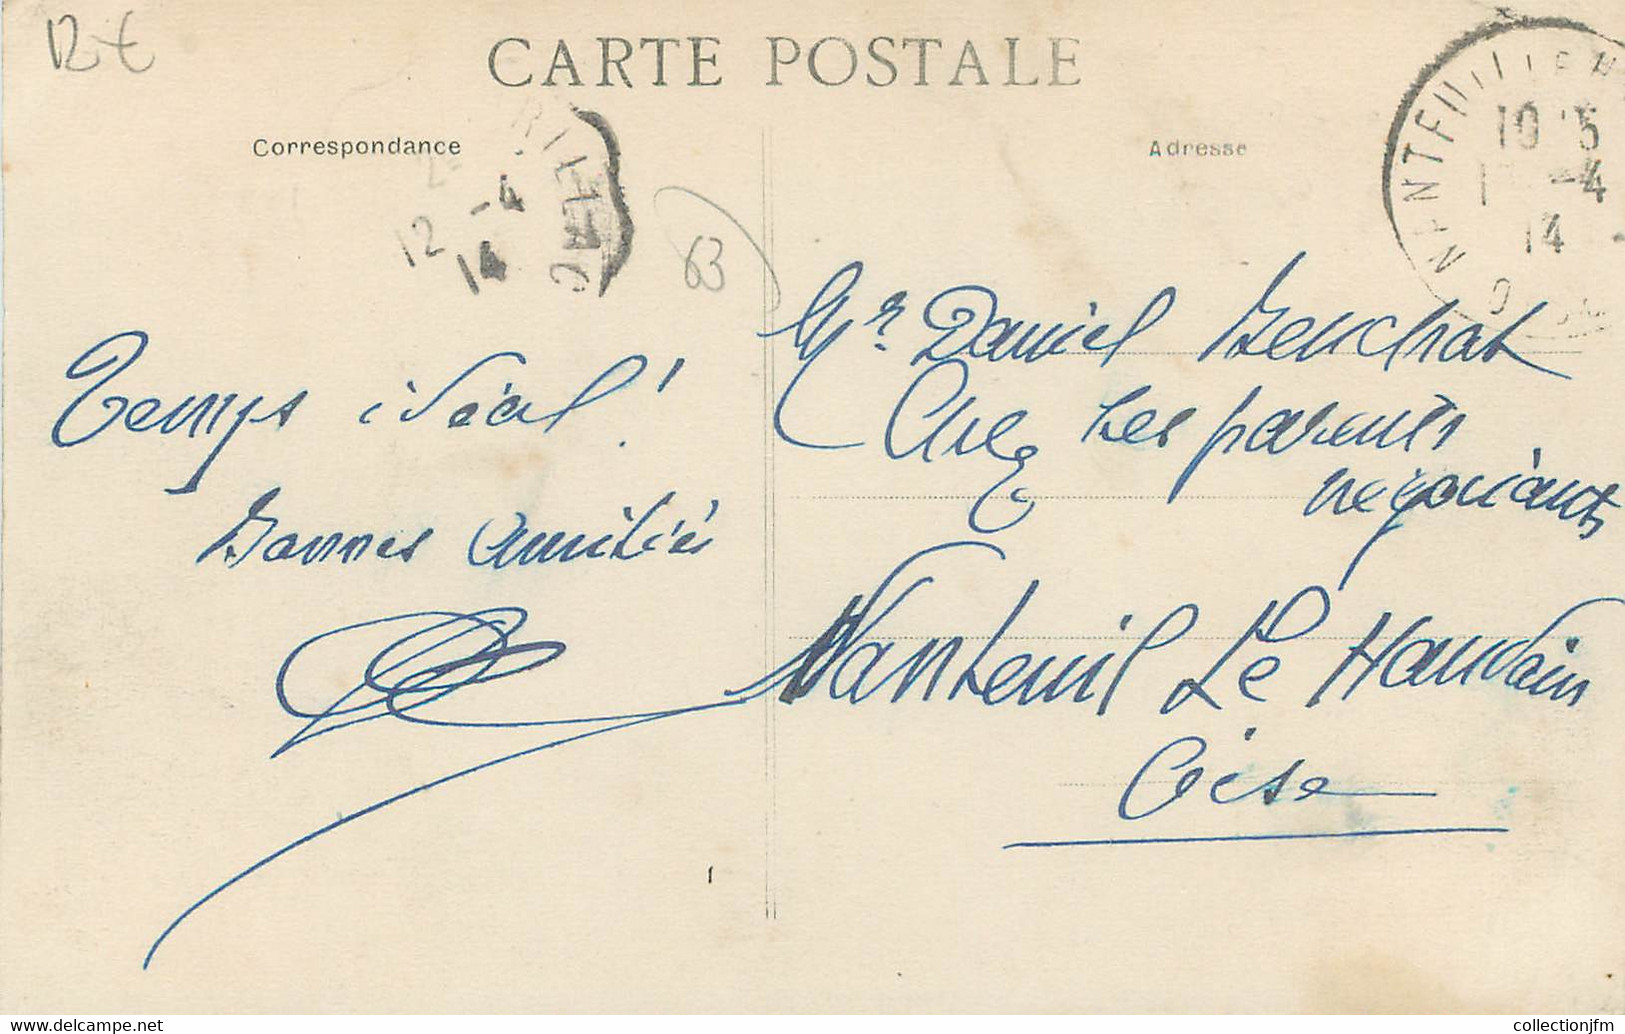 12 €
CARTE POSTALE
Correspondance
Adresse
12 -4
14
63
NANTEUIL
10
-4
14
Temps idéal !
Bonnes amitiés
Mr Daniel Beuchat
Chez ses parents
négociants
Nanteuil Le Haudoin
Oise
collectionjfm